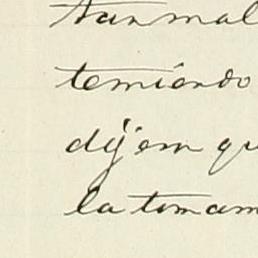 tan mal
temiendo
dijem qu
la toman